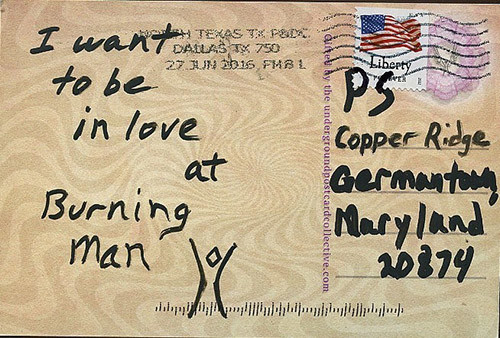 I want
to be
in love
at
Burning
Man
NORTH TEXAS TX P&DC
DALLAS TX 750
27 JUN 2016 PM 8 L
Liberty
FOREVER
by the undergroundpostcardcollective.com
PS
Copper Ridge
Germantown,
Maryland
20874